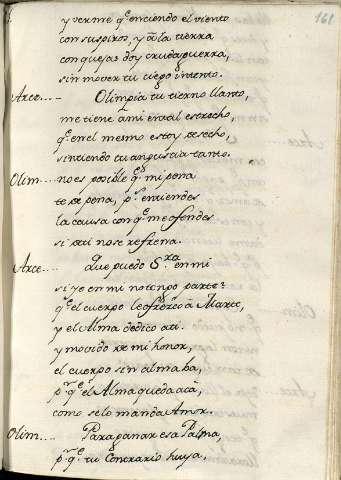 161
y verme q.e enciendo el viento
con suspiros, y a la tierra
con quejas doy cruda guerra,
sin mover tu ciego intento.
Arce.... Olimpia tu tierno llanto,
me tiene a mi en tal estrecho,
q.e en el mesmo estoy desecho,
sintiendo tu angustia tanto.
Olim.... no es posible q.e mi pena
te de pena, p.s entiendes
la causa con q.e me ofendes
si de ti no se refrena.
Arce.... Que puedo S.ra en mi
si yo en mi no tengo parte?
q.e el cuerpo le ofrezco à Marte,
y el Alma dedico a ti.
y movido de mi honor,
el cuerpo sin alma ba,
p.r q.e el Alma queda acà,
como se lo manda Amor.
Olim.... Para ganar esa Palma,
p.r q.e tu Contrario huya,